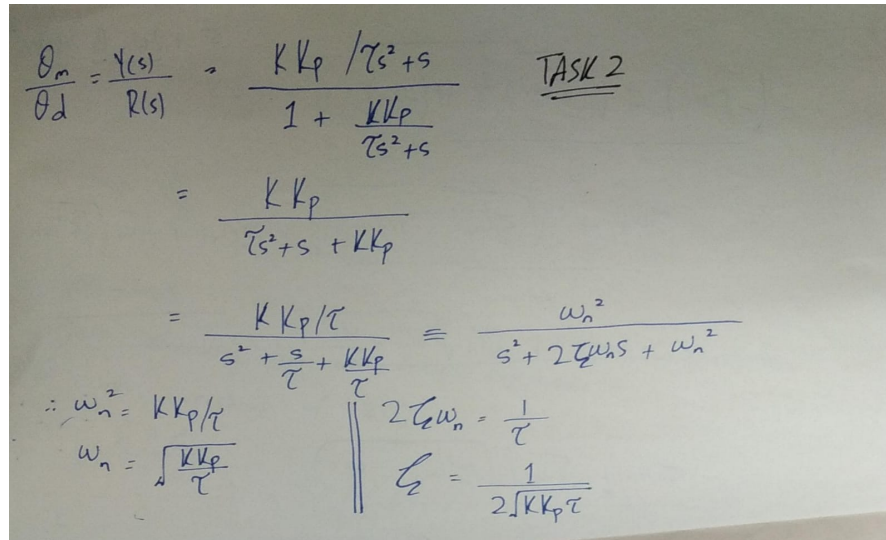 θm/θd = Y(s)/R(s) = (KKp / τs²+s) / (1 + KKp/(τs²+s))
TASK 2
= KKp / (τs²+s + KKp)
= (KKp/τ) / (s² + s/τ + KKp/τ) ≡ ωn² / (s² + 2ζωns + ωn²)
∴ ωn² = KKp/τ
2ζωn = 1/τ
ωn = √(KKp/τ)
ζ = 1 / (2√(KKpτ))